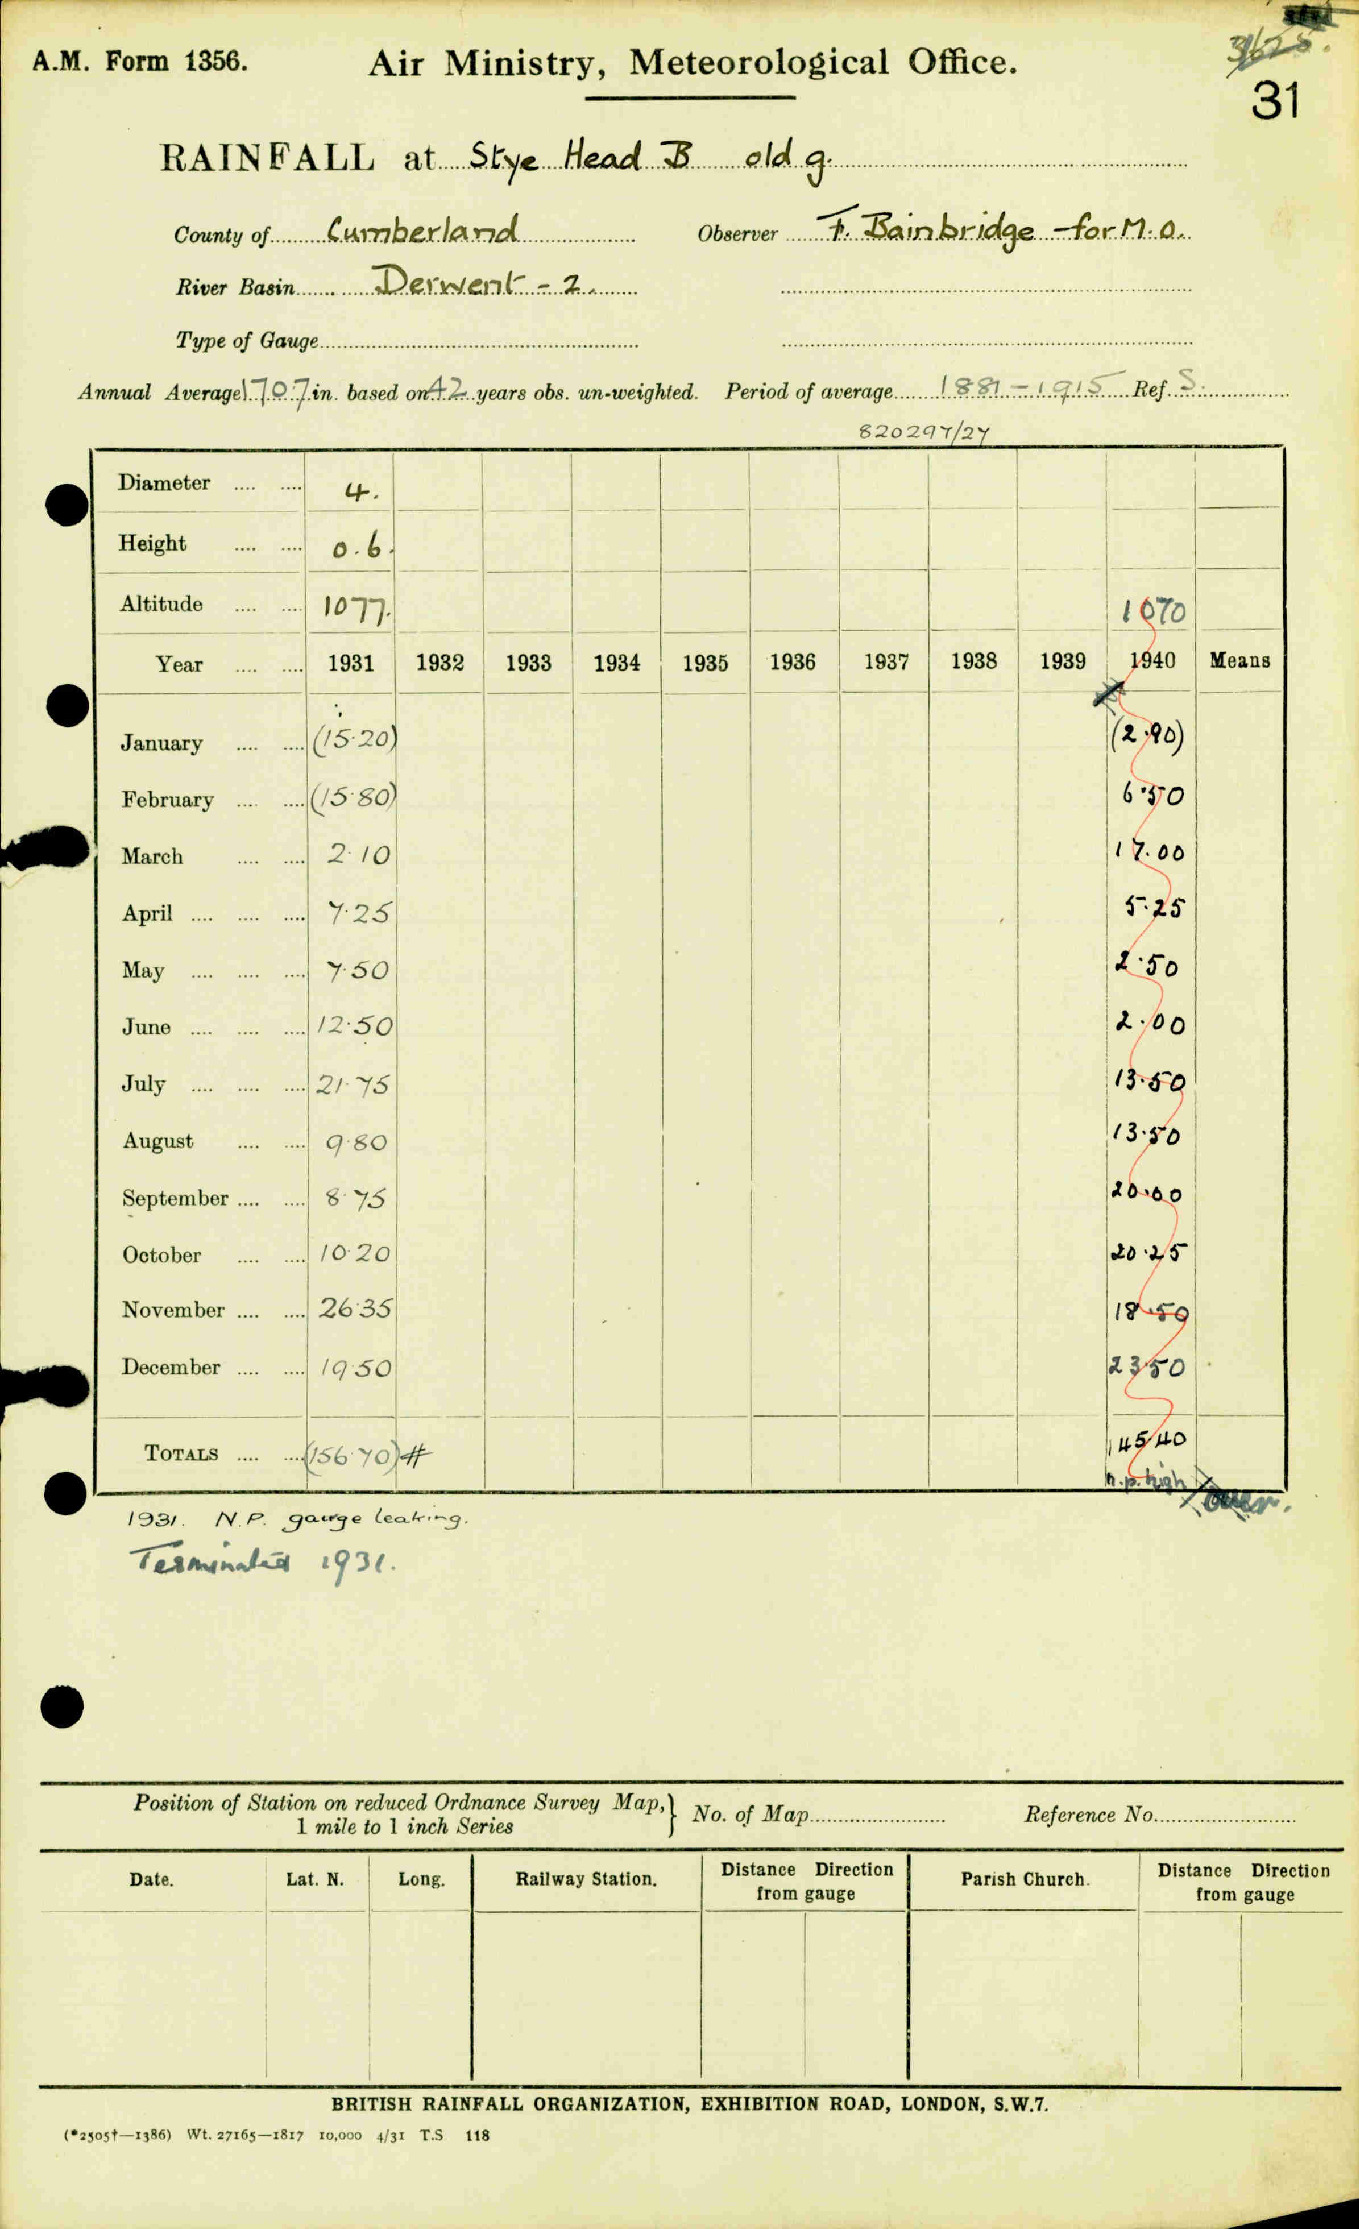 A.M. Form 1356. Air Ministry, Meteorological Office.
31
RAINFALL at Stye Head B old g.
County of Cumberland Observer F. Bainbridge - for M.O.
River Basin Derwent - 2.
Type of Gauge
Annual Average 170.7 in. based on 42 years obs. un-weighted. Period of average 1881 - 1915 Ref. S.
820297/27
Diameter 4.
Height 0.6.
Altitude 1077. 1070
Year 1931 1932 1933 1934 1935 1936 1937 1938 1939 1940 Means
January (15.20) (2.90)
February (15.80) 6.50
March 2.10 17.00
April 7.25 5.25
May 7.50 2.50
June 12.50 2.00
July 21.75 13.50
August 9.80 13.50
September 8.75 20.00
October 10.20 20.25
November 26.35 18.50
December 19.50 23.50
TOTALS (156.70) # 145.40
n.p. high over.
1931. N.P. gauge leaking.
Terminated 1931.
Position of Station on reduced Ordnance Survey Map, } No. of Map Reference No.
1 mile to 1 inch Series
Date. Lat. N. Long. Railway Station. Distance Direction from gauge Parish Church. Distance Direction from gauge
BRITISH RAINFALL ORGANIZATION, EXHIBITION ROAD, LONDON, S.W.7.
(*2505†—1386) Wt. 27165—1817 10,000 4/31 T.S 118